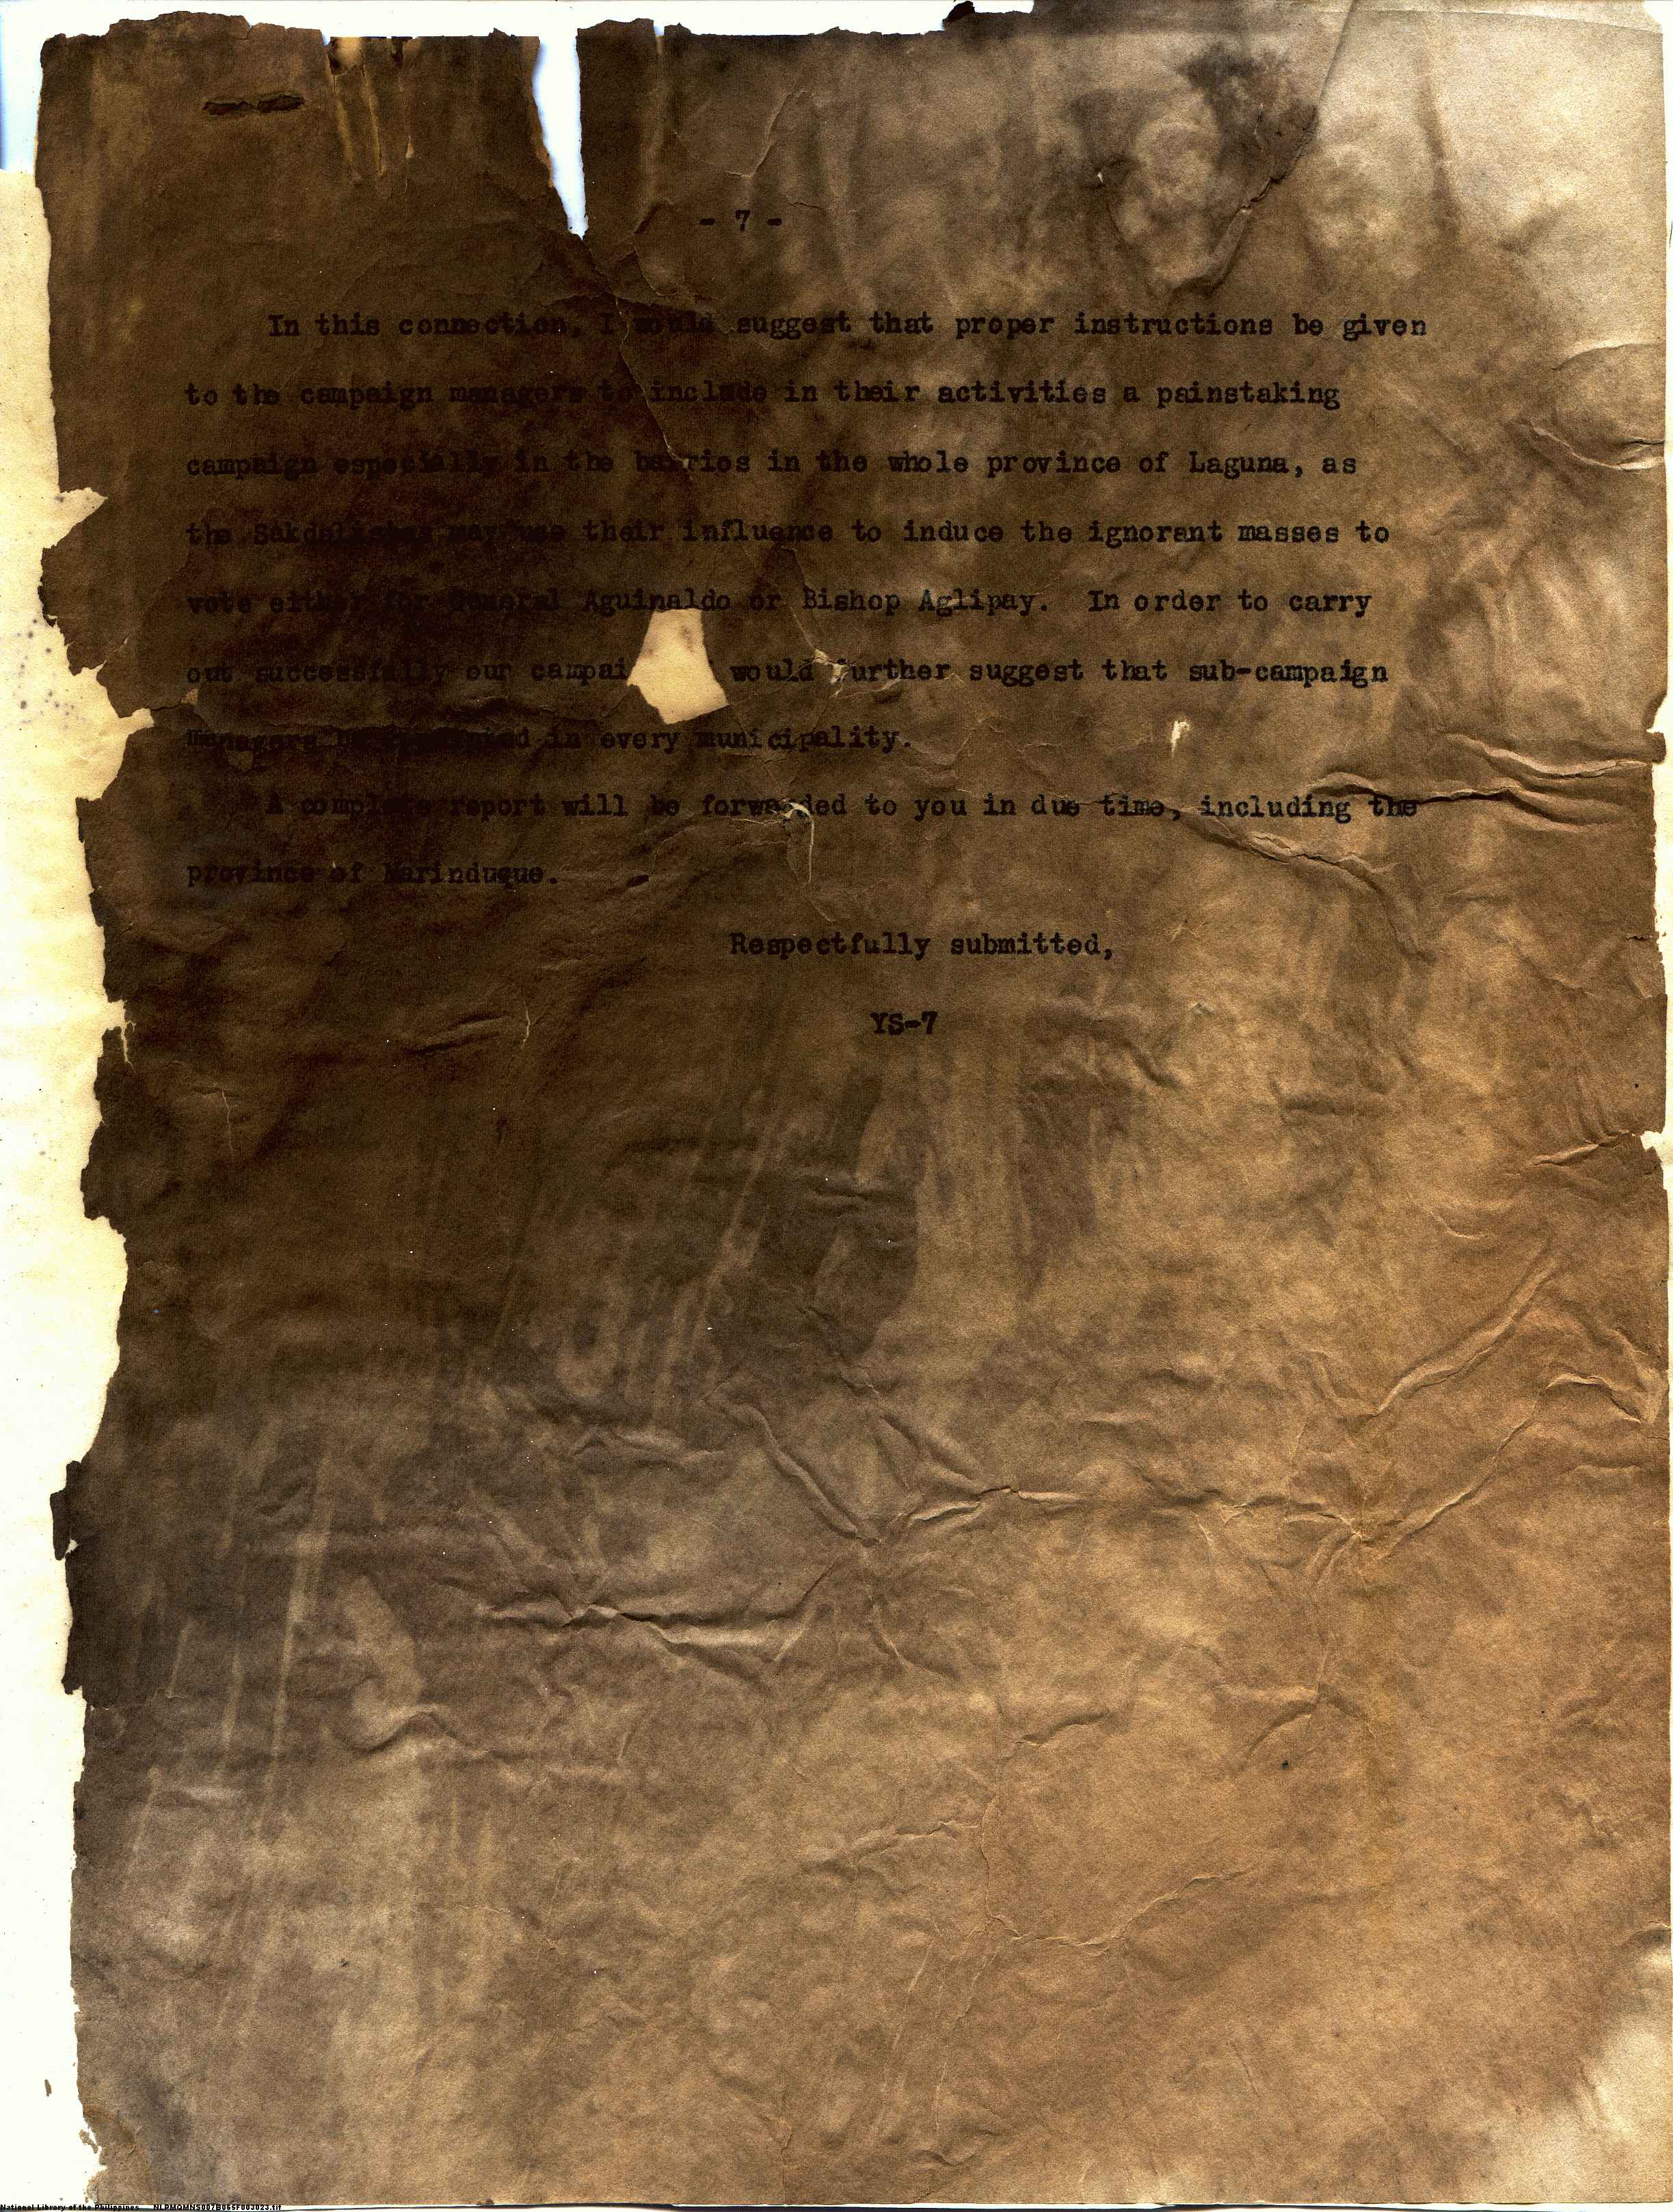 - 7 -
In this connection, I would suggest that proper instructions be given
to the campaign managers to include in their activities a painstaking
campaign especially in the barrios in the whole province of Laguna, as
the Sakdalistas may use their influence to induce the ignorant masses to
vote either for General Aguinaldo or Bishop Aglipay. In order to carry
out successfully our campai would further suggest that sub-campaign
Managers be in every municipality.
A complete report will be forwarded to you in due time, including the
province of Marinduque.
Respectfully submitted,
YS-7
National Library of the Philippines